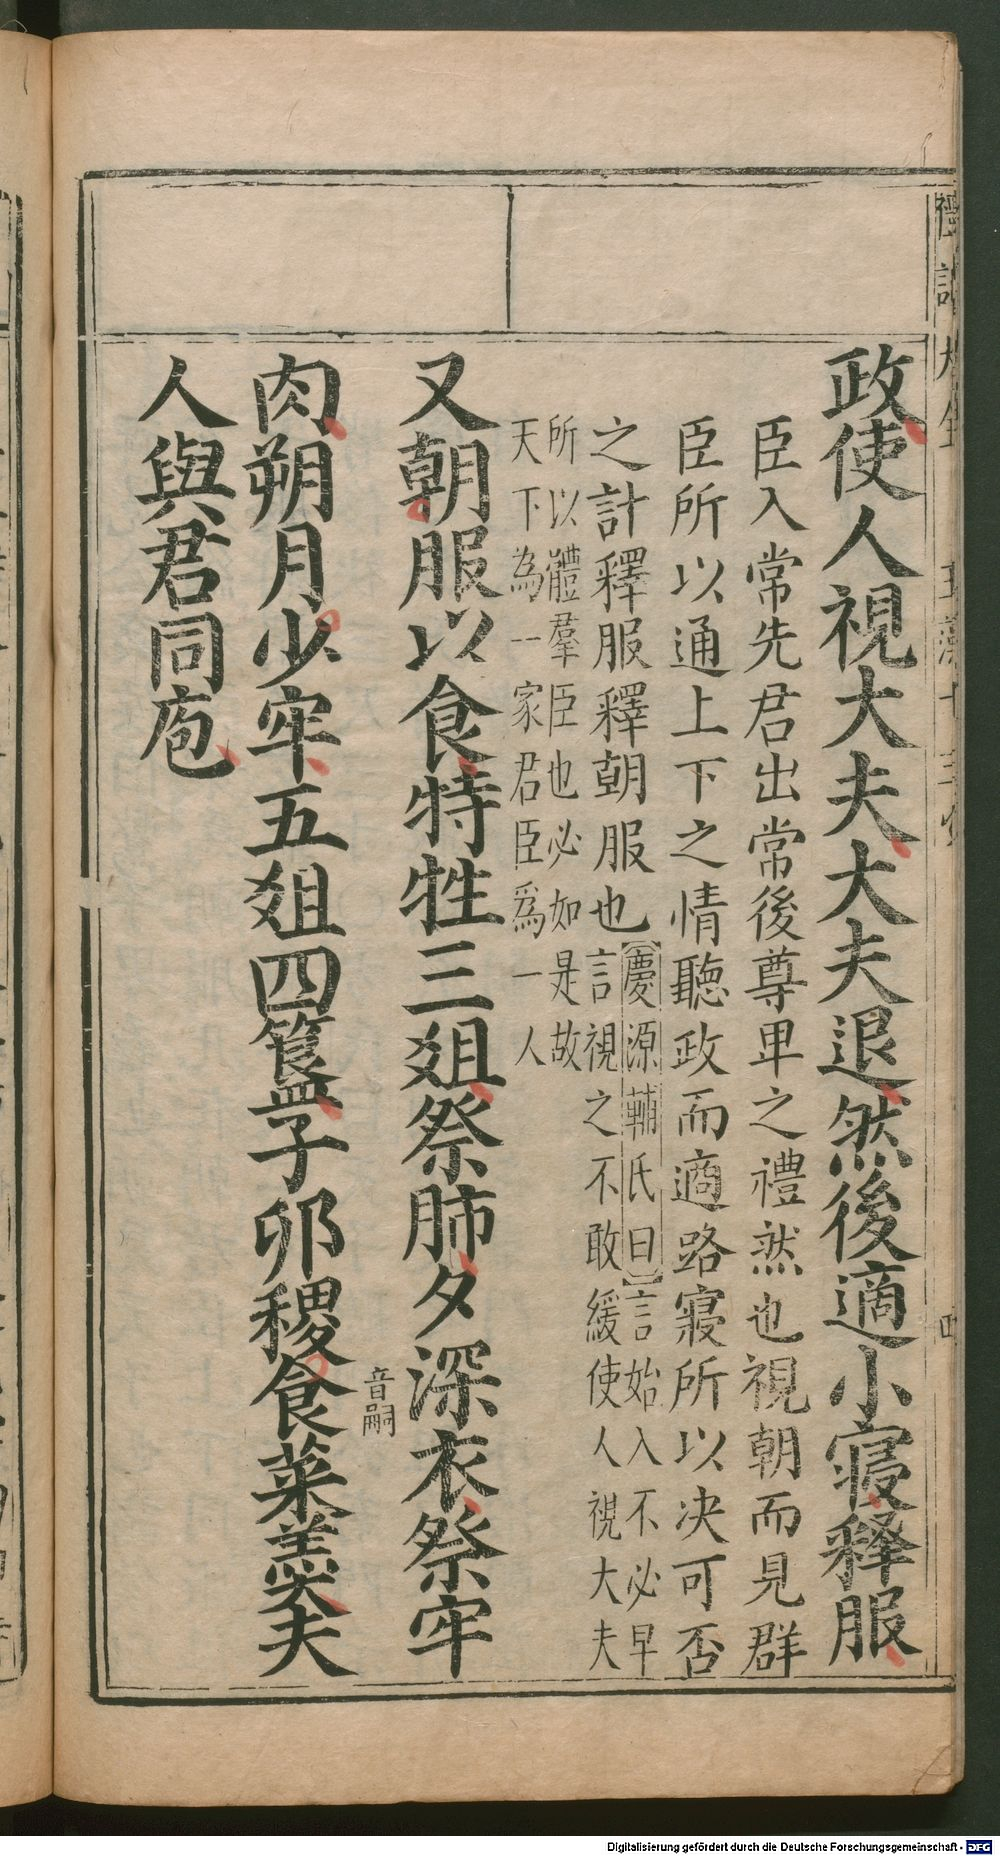 政使人視大夫大夫退然後適小寢釋服
臣入常先君出常後尊卑之禮然也視朝而見群
臣所以通上下之情聽政而適路寢所以决可否
之計釋服釋朝服也
慶源輔氏曰言始入不必早
言視之不敢緩使人視大夫
所以體羣臣也必如是故
天下為一家君臣爲一人
又朝服以食特牲三俎祭肺夕深衣祭牢
音嗣
肉朔月少牢五俎四簋子卯稷食菜羹夫
人與君同庖
Digitalisierung gefördert durch die Deutsche Forschungsgemeinschaft - DFG